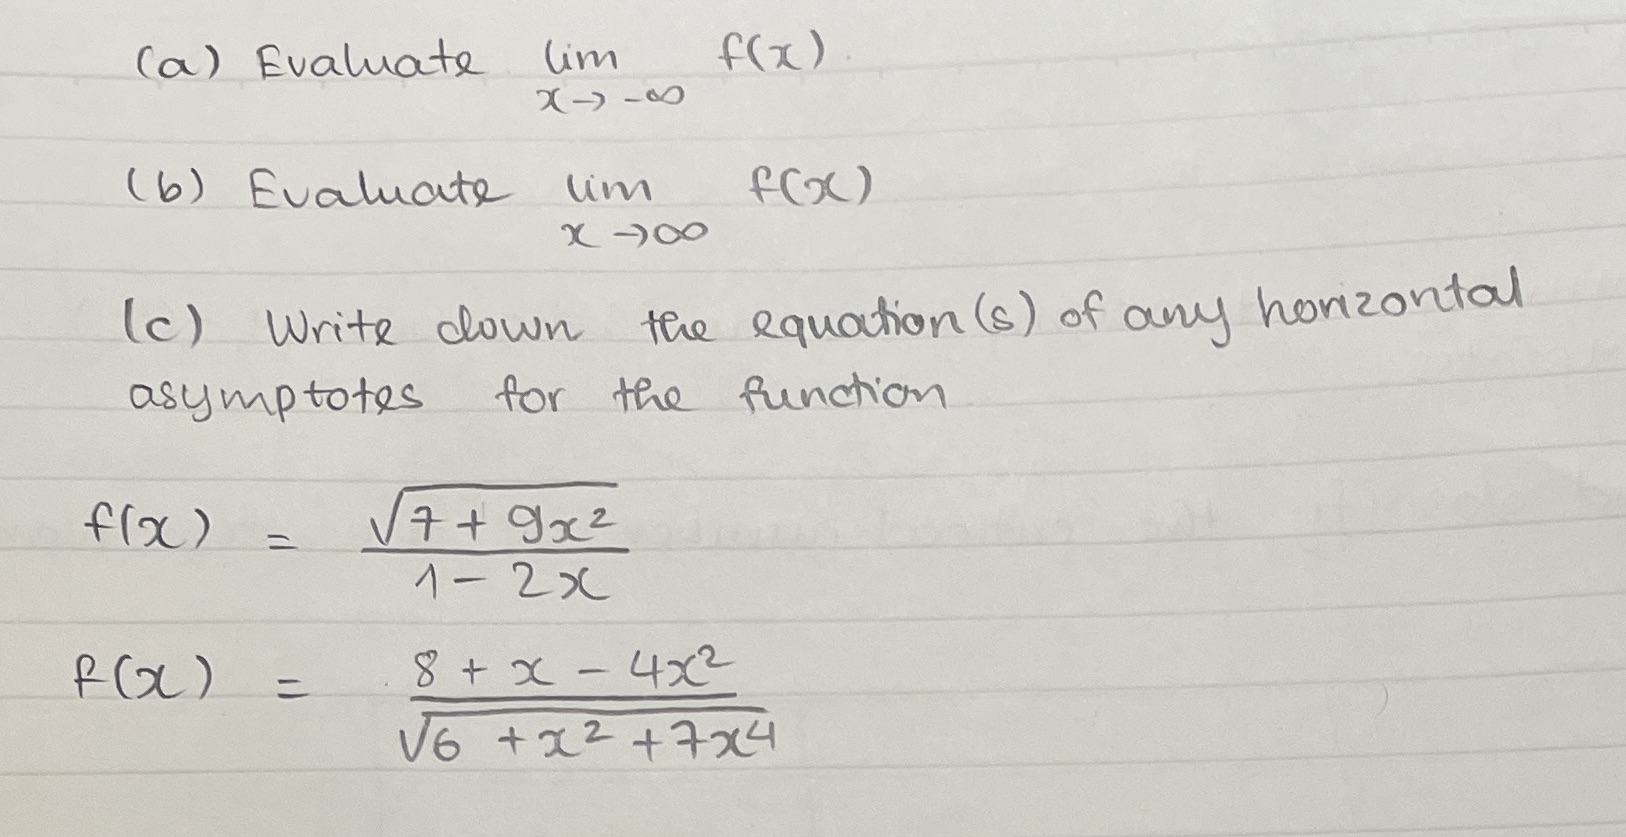 (a) Evaluate lim f(x).
x→-∞
(b) Evaluate lim f(x)
x→∞
(c) Write down the equation(s) of any horizontal
asymptotes for the function
f(x) = √(7+9x²)
1-2x
f(x) = 8+x-4x²
√(6+x²+7x⁴)